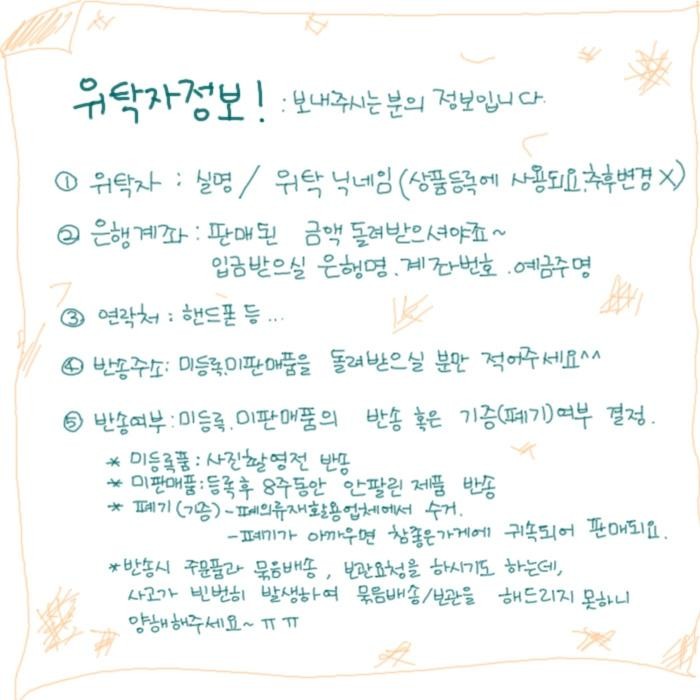 위탁자정보! : 보내주시는 분의 정보입니다.
① 위탁자 : 실명 / 위탁 닉네임 (상품등록에 사용되요.추후변경 X)
② 은행계좌 : 판매된 금액 돌려받으셔야죠~
입금받으실 은행명.계좌번호.예금주명
③ 연락처 : 핸드폰 등 ...
④ 반송주소: 미등록.미판매품을 돌려받으실 분만 적어주세요^^
⑤ 반송여부 : 미등록.미판매품의 반송 혹은 기증(폐기)여부 결정.
* 미등록품 : 사진촬영전 반송
* 미판매품 : 등록후 8주동안 안팔린 제품 반송
* 폐기(기증) - 폐의류재활용업체에서 수거.
- 폐기가 아까우면 참좋은가게에 귀속되어 판매되요.
* 반송시 주문품과 묶음배송, 보관요청을 하시기도 하는데,
사고가 빈번히 발생하여 묶음배송/보관을 해드리지 못하니
양해해주세요~ ㅠㅠ